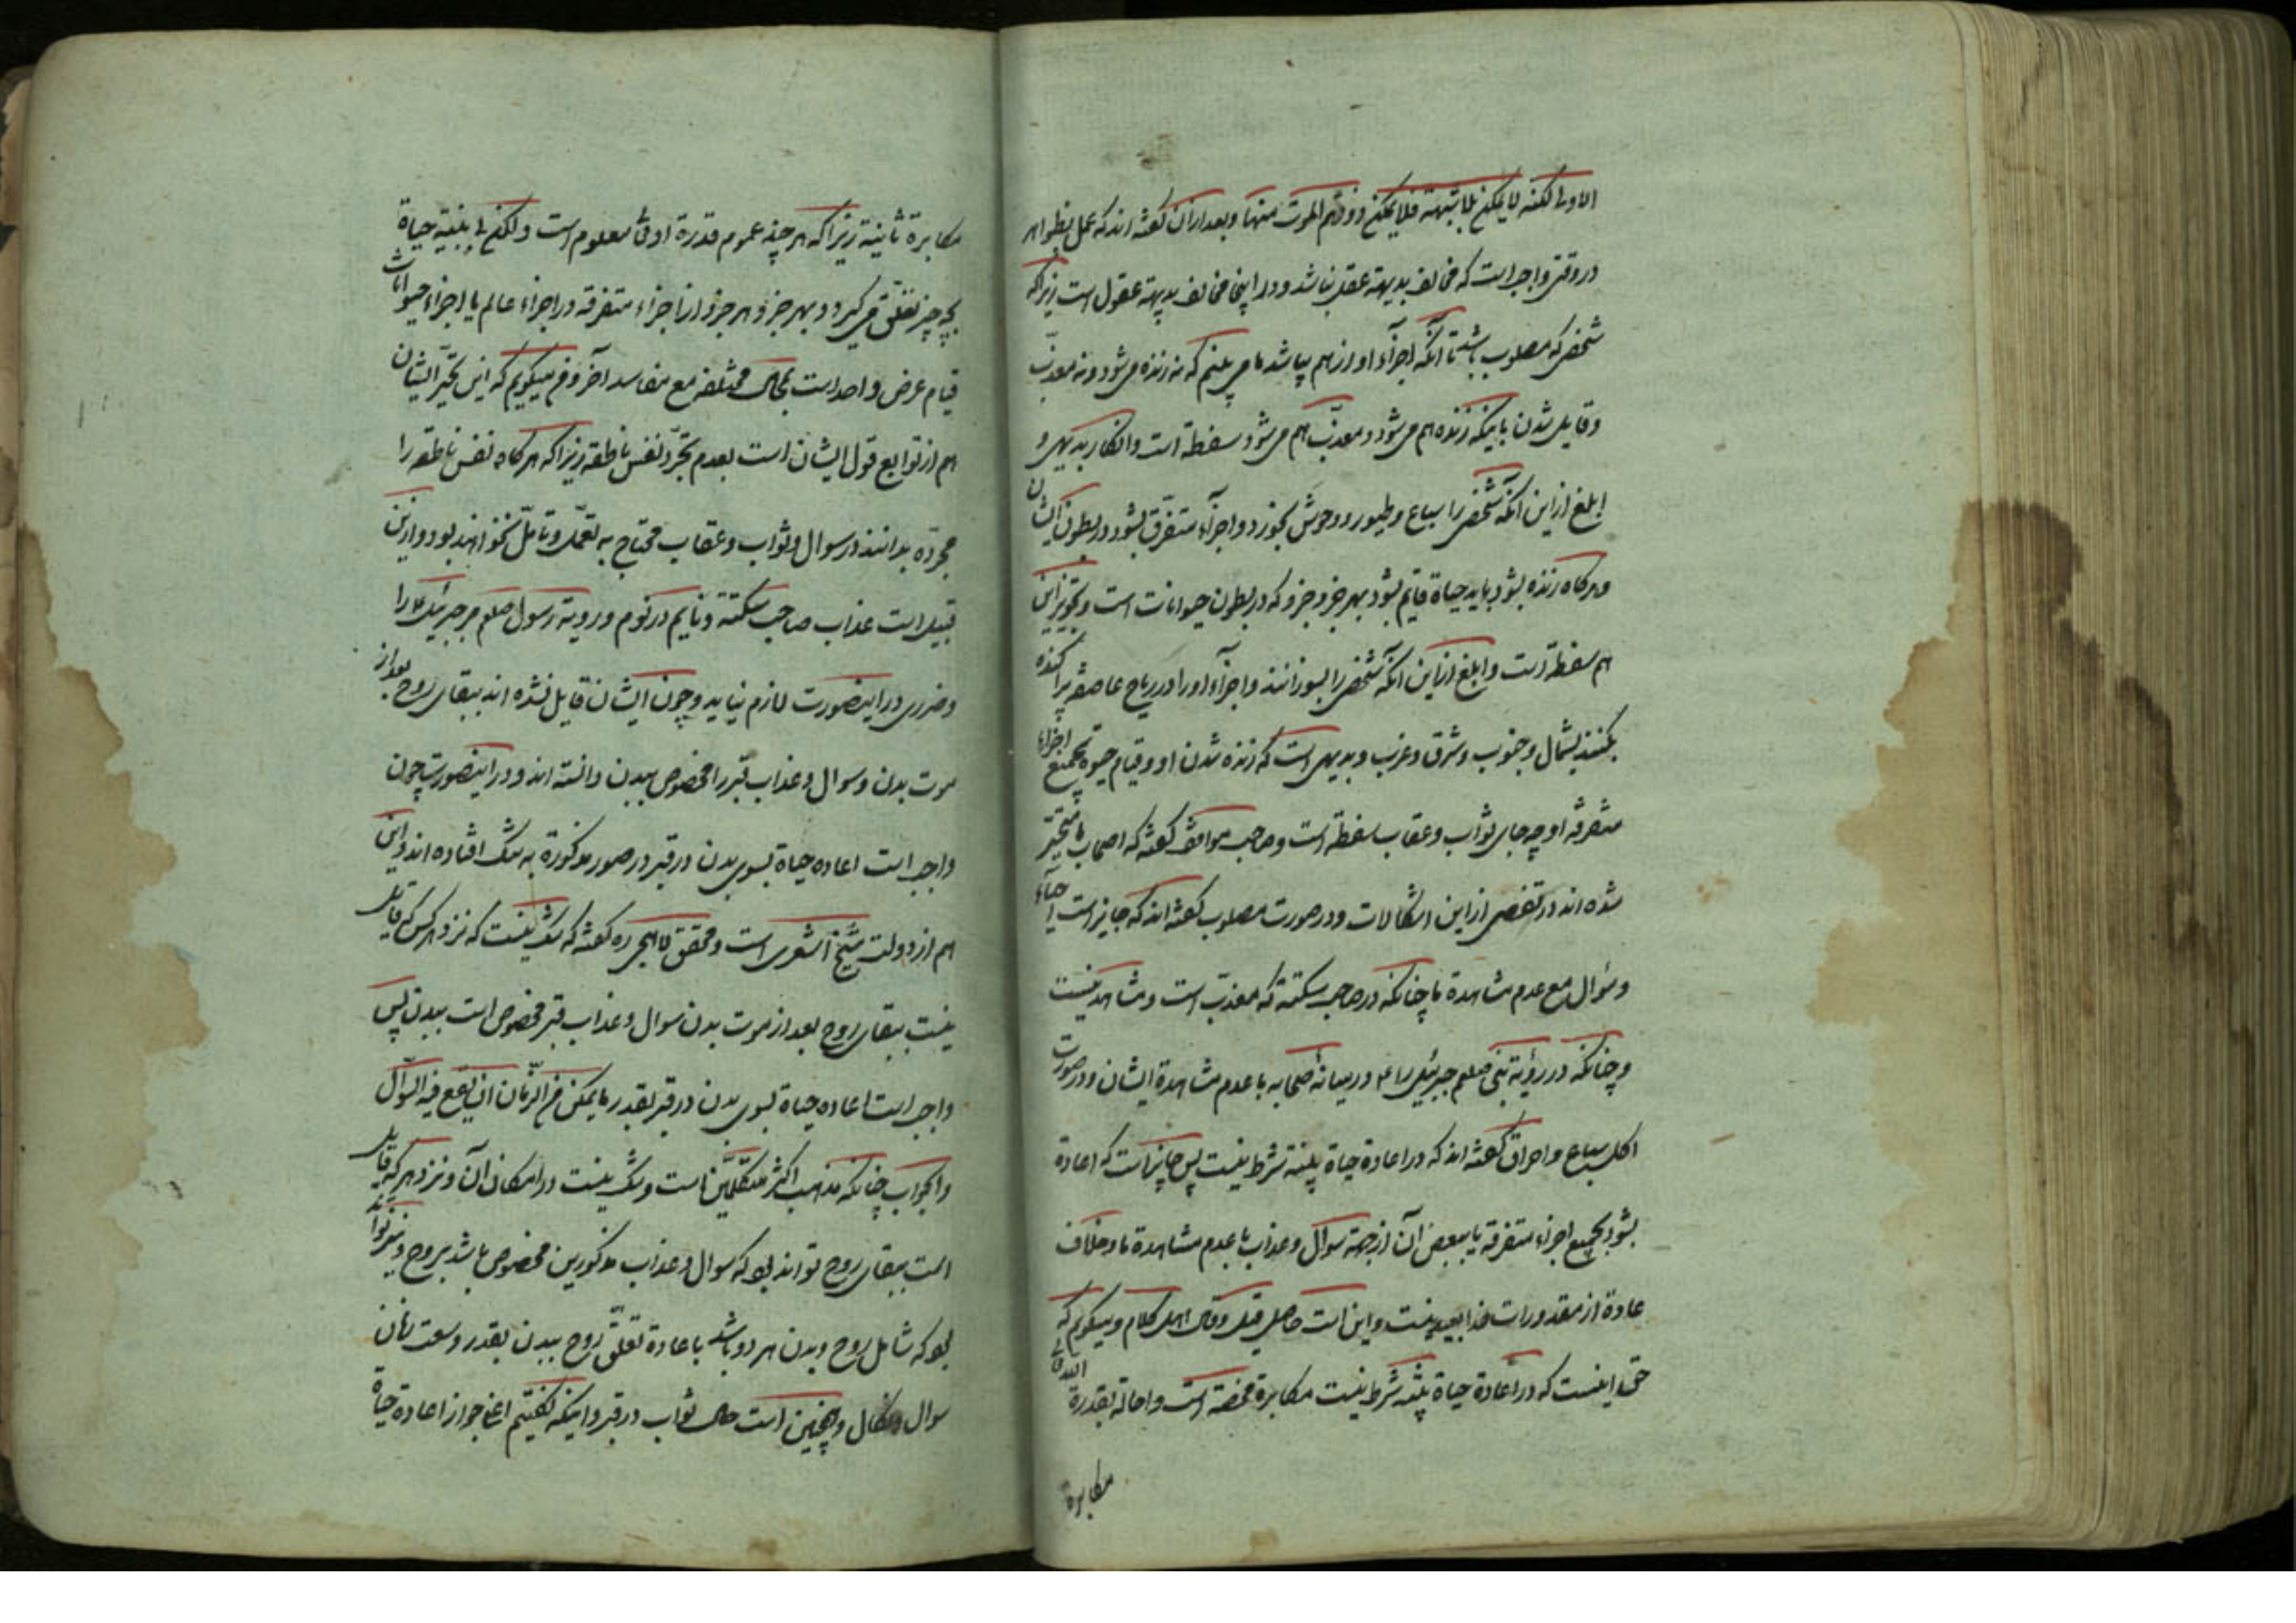 الاولی لکنه لا یمکن بلا شبهة فلا یمکن ذوقهم الموت منها و بعد از آن گفته اند که عمل بظواهر
در وقتی واجب است که مخالف بدیهه عقل نباشد و در اینجا مخالف بدیهه عقول است زیرا که
شخصی که مصلوب باشد تا آنکه اجزاء او از هم بپاشد ما می بینم که نه زنده می شود و نه معذب
و قایل شدن باینکه زنده هم می شود و معذب هم می شود سفطة است و انکار بدیهی و
ابلغ از این آنکه شخصی را سباع و طیور و وحوش بخورد و اجزاء متفرق بشود در بطون ایشان
و هرکاه زنده بشود باید حیاة قایم بشود بهر جزو جزو که در بطون حیوانات است و تجویز این
هم سفطة است و ابلغ از این آنکه شخصی را بسوزانند و اجزاء او را در ریاح عاصفه پراکنده
بکنند بشمال و جنوب و شرق و غرب و بدیهی است که زنده شدن او و قیام حیوة بجمیع اجزاء
متفرقه او چه جای ثواب و عقاب سفطه است و صاحب مواقف گفته که اصحاب ما متحیر
شده اند در تفصی از این اشکالات و در صورت مصلوب گفته اند که جایز است احیاء
و سؤال مع عدم مشاهدة ما چنانکه در صاحب سکتة که معذب است و مشاهد نیست
و چنانکه در رؤیة نبی صلعم جبرئیل را ع در میانه صحابه با عدم مشاهدة ایشان و در صورت
اکل سباع و احراق گفته اند که در اعادة حیاة بنیة شرط نیست پس جایز است که اعادة
بشود بجمیع اجزاء متفرقه یا ببعض آن از جهة سوال و عذاب با عدم مشاهدة ما و خلاف
عادة از مقدورات خدا بعید نیست و این است حاصل قیل و قال اهل کلام و میگویم که
حق اینست که در اعادة حیاة بنیه شرط نیست مکابرة محضة است و احاله بقدرة الله تعالی
مکابرة
مکابرة ثانیة زیرا که هر چند عموم قدرة او تعالی معلوم است و لکن لی بنیه حیاة
بچه چیز تعلق می گیرد و بهر جزو هر جزو از اجزاء متفرقه در اجزاء عالم یا اجزاء حیوانات
قیام عرض واحد است بمحال مختلفه مع مفاسد آخر و میگویم که این تحیر ایشان
هم از توابع قول ایشان است بعدم تجرد نفس ناطقه زیرا که هرکاه نفس ناطقه را
مجرده بدانند در سوال و ثواب و عقاب محتاج به تعمل و تامل نخواهند بود و از این
قبیل است عذاب صاحب سکتة و نایم در نوم و رویة رسول صلعم مر جبرئیل ع را
و ضرری در اینصورت لازم نیاید و چون ایشان قایل نشده اند ببقای روح بعد از
موت بدن و سوال و عذاب قبر را مخصوص ببدن دانسته اند و در اینصورت چون
واجب است اعاده حیاة بسوی بدن در قبر در صور مذکورة به شک افتاده اند و این
هم از دولت شیخ اشعری است و محقق لاهیجی ره گفته که شک نیست که نزد هر کس که قایل
نیست ببقای روح بعد از موت بدن سوال و عذاب قبر مخصوص است ببدن پس
واجب است اعاده حیاة بسوی بدن در قبر بقدر ما یمکن من الزمان ان یقع فیه السؤال
و الجواب چنانکه مذهب اکثر متکلمین است و شک نیست در امکان آن و نزد هر که قایل
است ببقای روح تواند بود که سوال و عذاب مذکورین مخصوص باشد بروح و نیز تواند
بود که شامل روح و بدن هر دو باشد با عادة تعلق روح ببدن بقدر وسعت زمان
سوال و همچنین است حال ثواب در قبر و اینکه گفتیم اعنی جواز اعاده حیاة